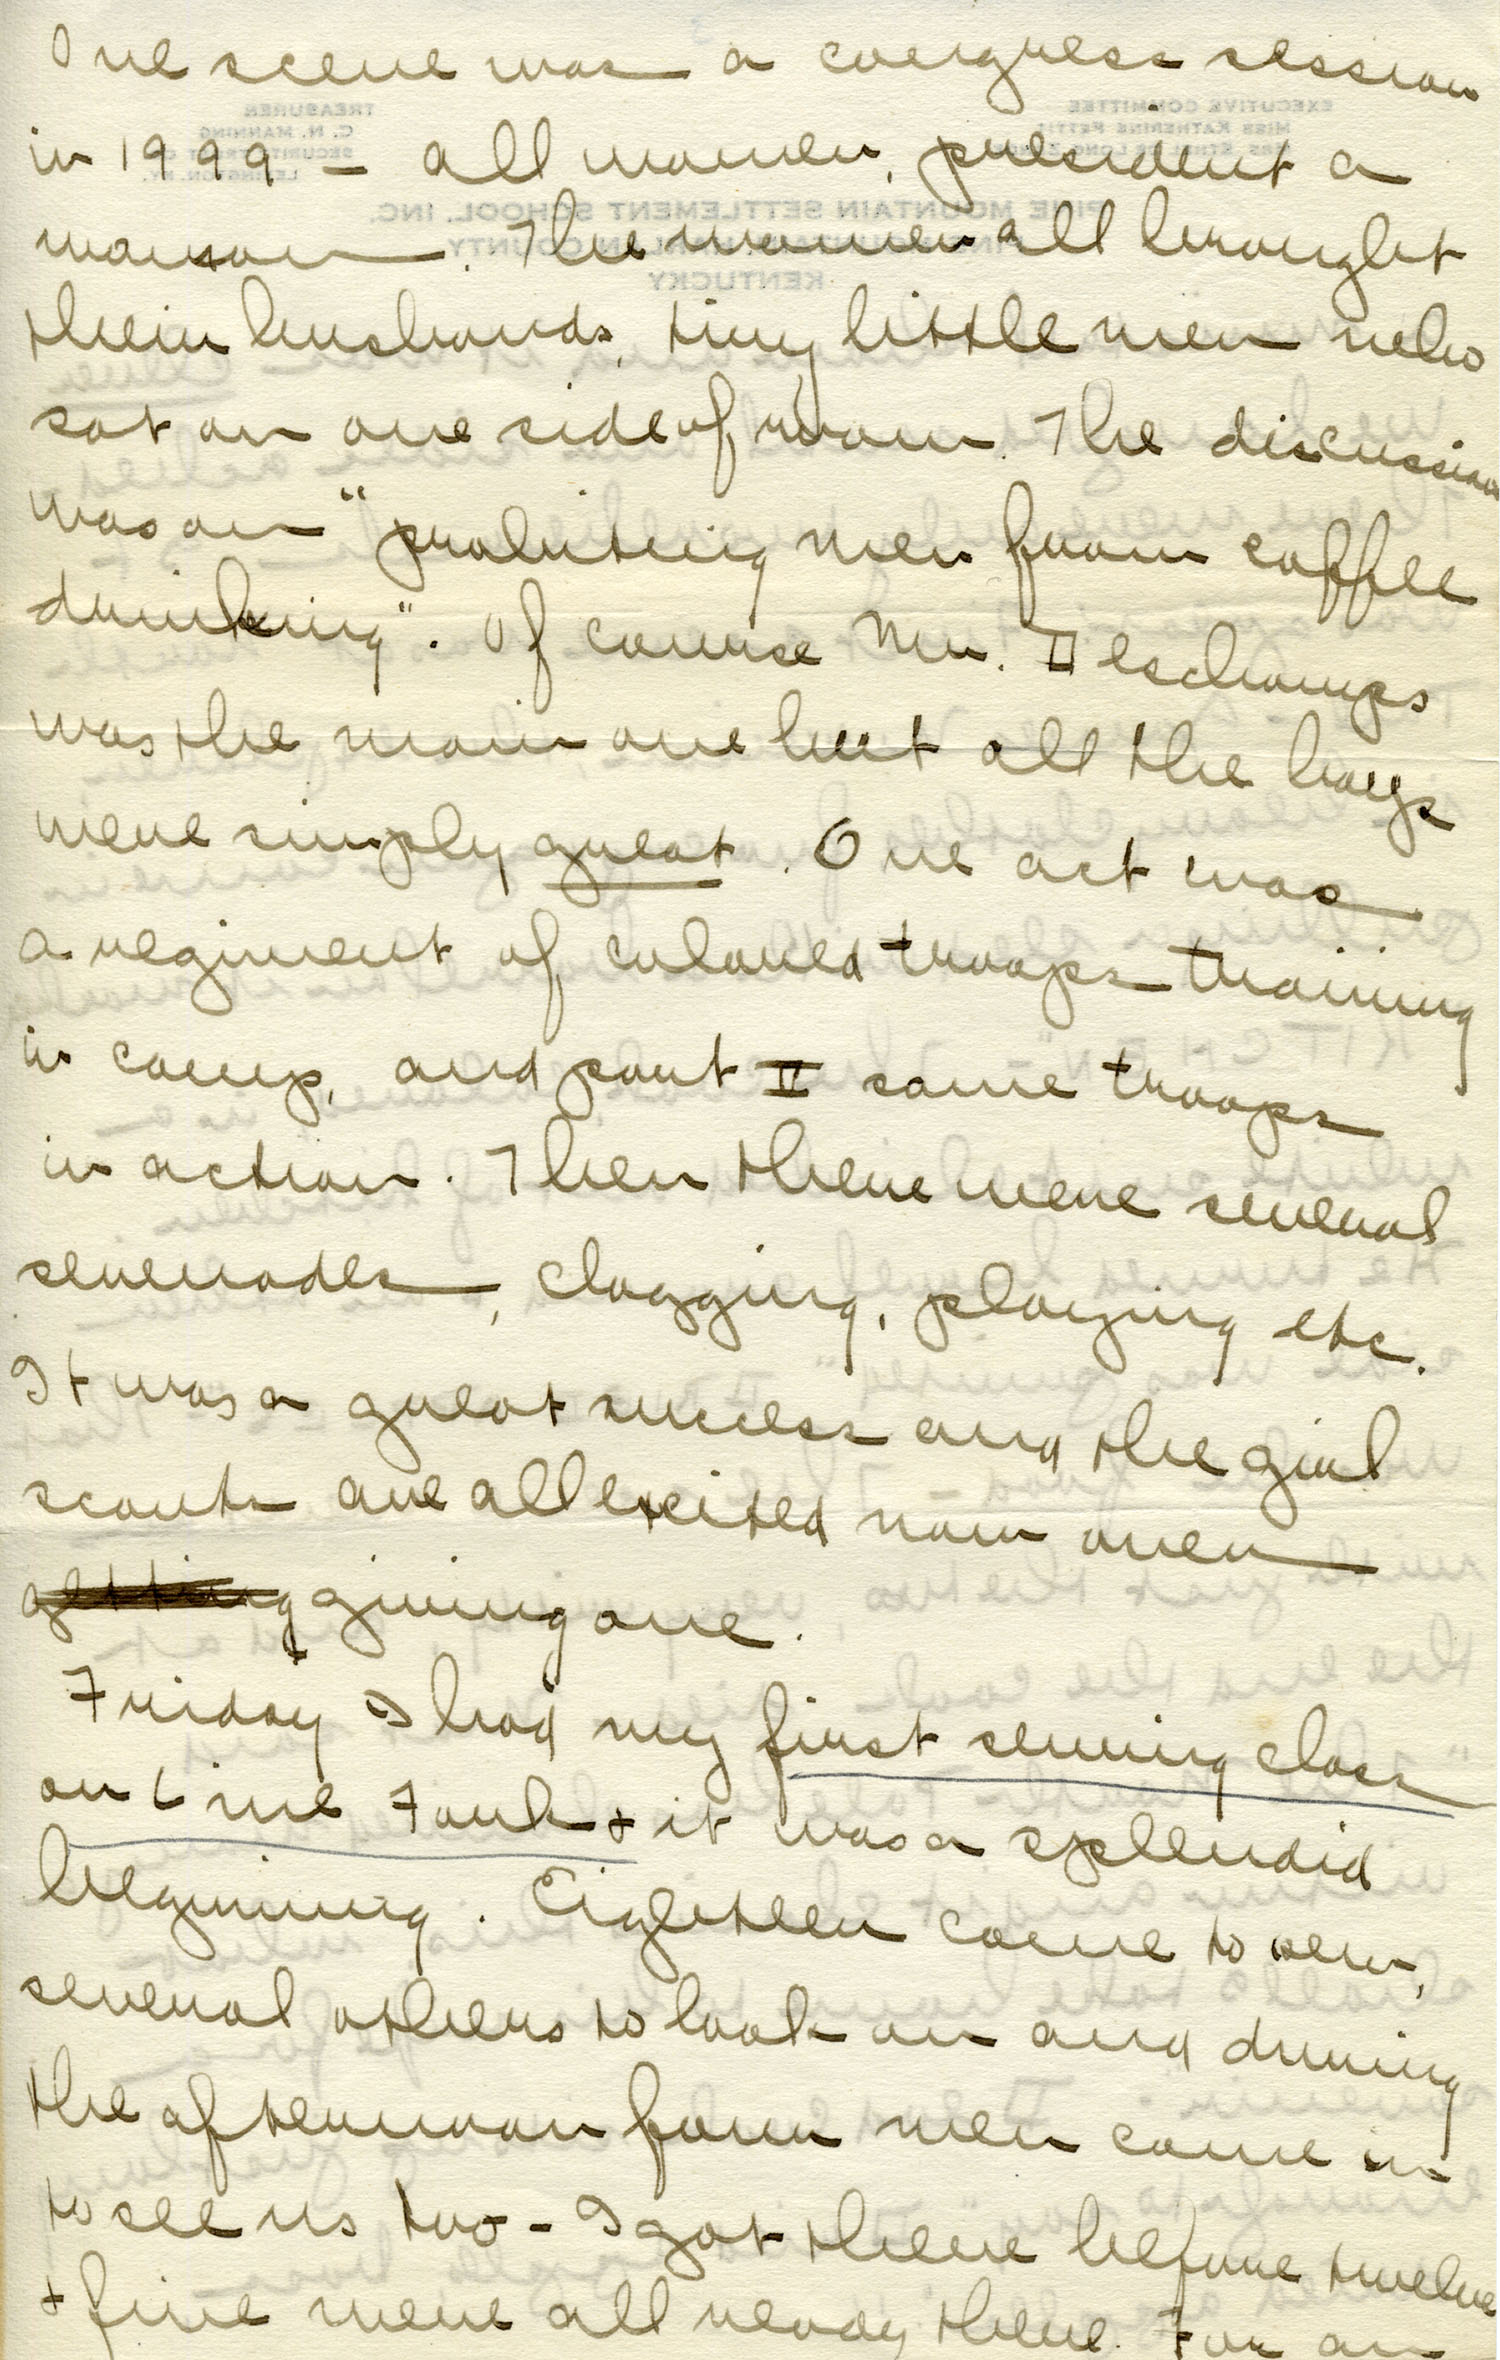 One scene was a congress session
in 1999 – all women, president a
woman. The women all brought
their husbands, tiny little men who
sat on one side of room. The discussion
was on "prohiting men from coffee
drinking". Of course Mr. Deschamps
was the main one but all the boys
were simply great. One act was
a regiment of colored troops training
in camp, and part II same troops
in action. Then there were several
serenades, clogging, playing etc.
It was a great success and the girl
scouts are all excited now over
getting giving one.
Friday I had my first sewing class
on Line Fork & it was a splendid
beginning. Eighteen came to sew,
several others to look on and during
the afternoon four men came in
to see us too - I got there before twelve
& five were all ready there. For an
EXECUTIVE COMMITTEE
MISS KATHERINE PETTIT
TREASURER
C. N. MANNING
SECURITY TRUST CO.
LEXINGTON, KY.
PINE MOUNTAIN SETTLEMENT SCHOOL, INC.
KENTUCKY